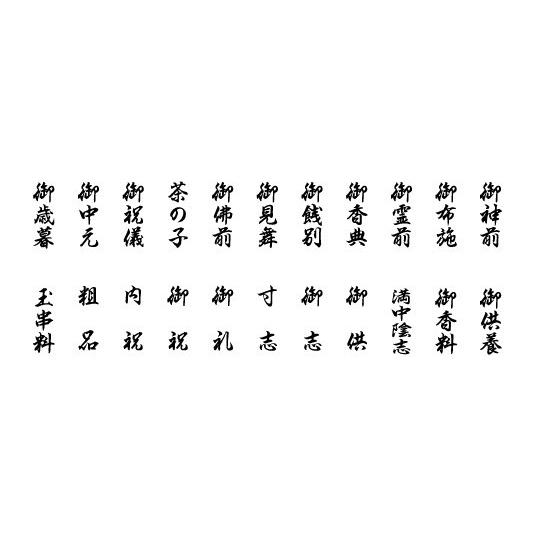 御神前
御布施
御霊前
御香典
御餞別
御見舞
御佛前
茶の子
御祝儀
御中元
御歳暮
御供養
御香料
満中陰志
御供
御志
寸志
御礼
御祝
内祝
粗品
玉串料